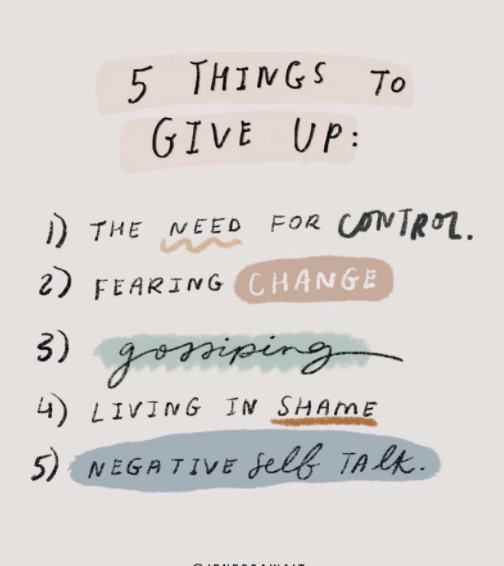 5 THINGS TO
GIVE UP:
1) THE NEED FOR CONTROL.
2) FEARING CHANGE
3) gossiping
4) LIVING IN SHAME
5) NEGATIVE self TALK.